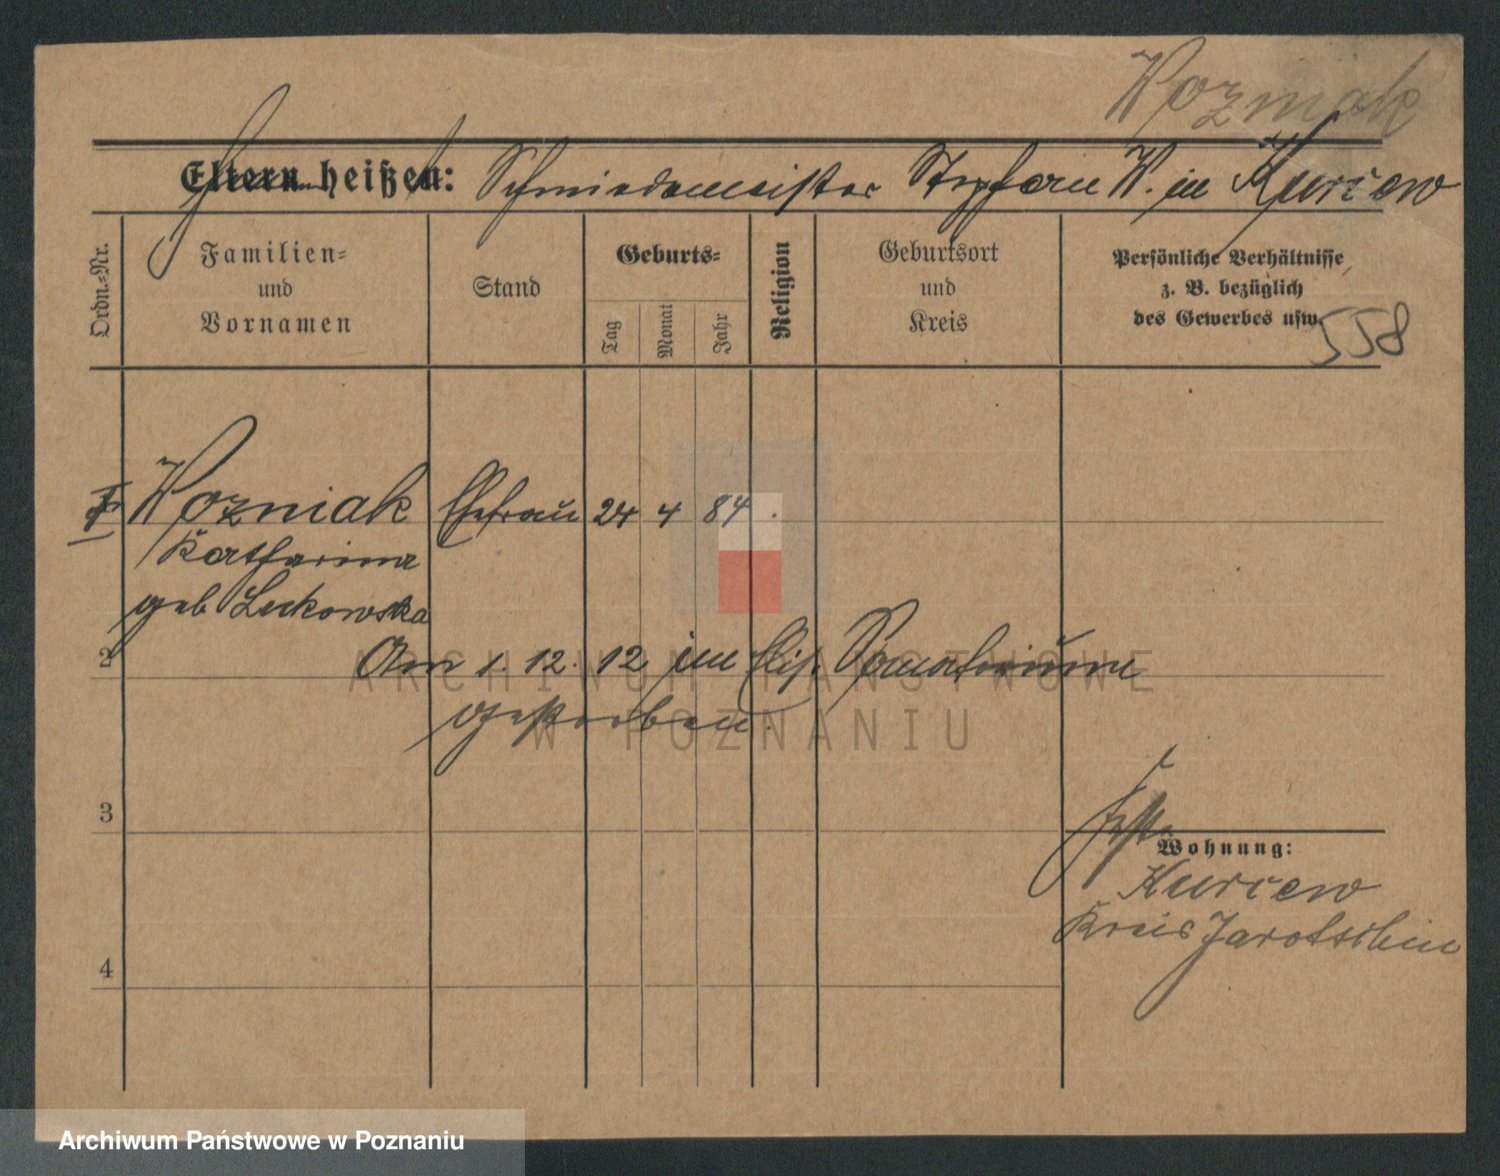 Wozniak
Eltern heißen: Schmiedemeister Stephan W. in Kurcew
Ordn.-Nr.
Familien-
und
Vornamen
Stand
Geburts-
Tag
Monat
Jahr
Religion
Geburtsort
und
Kreis
Persönliche Verhältnisse
z. B. bezüglich
des Gewerbes usw.
558
Wozniak Ehefrau 24 4 84.
Katharina
geb Leckowska
2
Am 1. 12. 12 im Elis. Sanatorium
gestorben.
3
Wohnung:
Kurcew
Kreis Jarotschin
4
ARCHIWUM PAŃSTWOWE
W POZNANIU
Archiwum Państwowe w Poznaniu